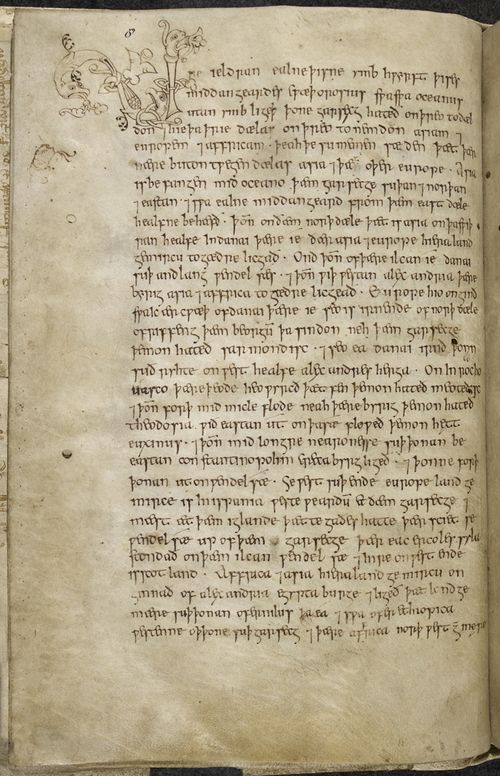 Ure ieldran ealne þisne ymb hƿyrft þises
middangeardes cƿæþ orosius sƿa sƿa oceanus
utan ymb ligeþ þone garsecg hated on þreo todæl
don ⁊ hie þa þrie dælas on þreo tonemdon asiam ⁊
europem ⁊ affricam · þeah þe sume men sæden þæt þær
nære buton tƿegen dælas asia ⁊ þæt oþer europe · Asia
is befangen mid oceano þæm garsecge suþan ⁊ norþan
⁊ eastan ⁊ sƿa ealne middangeard from þæm east dæle
healfne behæfð · þoñ on ðæm norþ dæle þæt is asia on þa sƿiþ
ran healfe Indanai þære ie ðær asia ⁊ europe hiera land
gemircu togædre licgað · Ond þoñ of þære ilcan ie danai
suþ andlang ƿendel sæs · ⁊ þoñ ƿiþ ƿestan alexandria þære
byrig asia ⁊ affrica togædre licgead · Europe hio onginð
sƿa ic ær cƿæþ of danai þære ie seo is irnende of norþ dæle
of riffeng þæm beorgum þa sindon neh þæm garsecge
þe mon hated sarmondisc · ⁊ seo ea danai irnð þonan
suð ryhte on ƿest healfe alexandres herga · On In rocho
uasco þære þeode heo ƿyrcð þæt fæn þe mon hated meotedisc
⁊ þoñ forþ mid micle flode neah þære byrig þe mon hated
theodosia ƿið eastan ut on þa sæ floƿeð þe mon hætt
euxinus · ⁊ þoñ mid longre nearonesse suþ þonan be
eastan constantinopolim creca byrig ligeð · ⁊ þonne forþ
þonan ut on ƿendel sæ · Se ƿest suþ ende europe land ge
mirce is Inispania ƿeste ƿeardum et ðæm garsecge ⁊
mæst æt þæm iglande þætte gades hatte þær sciet se
ƿendel sæ up of þæm garsecge þær eac ercoles syla
stondað on þæm ilcan ƿendel sæ ⁊ hire on ƿest ende
is scotland · Affrica ⁊ asia hiera land ge mircu on
ginnað of alexandria egypta burge ⁊ ligeð þæt lond ge
mære suþ þonan ofer nilus þa ea ⁊ sƿa ofer ethiopica
ƿestenne oþþone suþ garsecg ⁊ þære affrica norþ ƿest ge mære